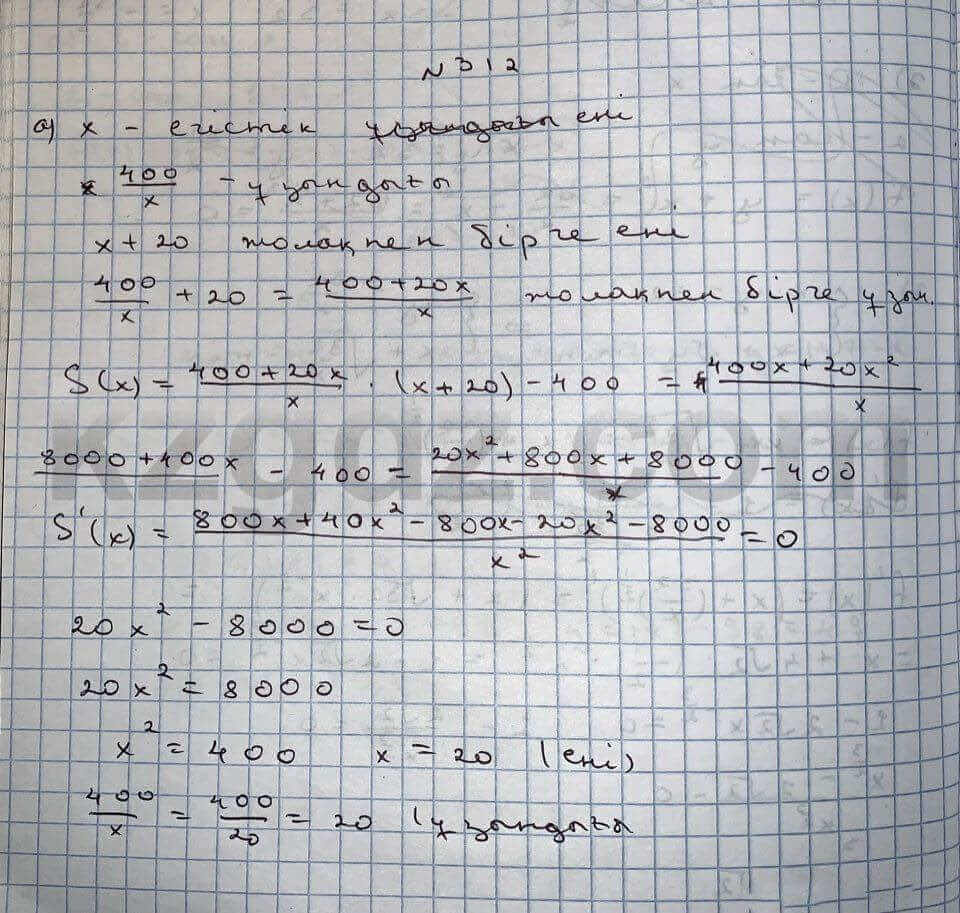 N 312
а) x - егістек ені
400/x - ұзындығы
x + 20 жолақпен бірге ені
400/x + 20 = (400+20x)/x жолақпен бірге ұзын.
S(x) = (400+20x)/x · (x+20) - 400 = (400x+20x²)/x
(8000+400x) - 400 = (20x²+800x+8000)/x - 400
S'(x) = (800x+40x²-800x-20x²-8000)/x² = 0
20x² - 8000 = 0
20x² = 8000
x² = 400 x = 20 (ені)
400/x = 400/20 = 20 (ұзындығы
kzgdz.com